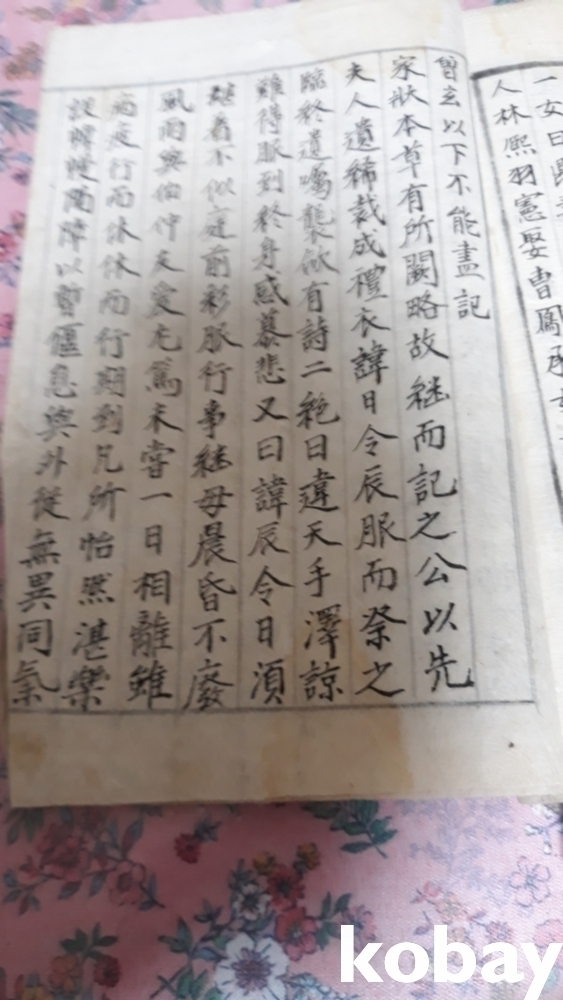 一女曰
人林熙羽憲娶曺鳳承
曾玄以下不能盡記
家狀本草有所闕略故継而記之公以先
夫人遺稀裁成禮衣諱日令辰服而祭之
臨終遺囑襲斂有詩二絶曰違天手澤諒
難得服到終身感慕悲又曰諱辰令日湏
継着不似庭前彩服行事継母晨昏不廢
風雨與伯仲友愛尤篤未嘗一日相離雖
病疲行而休休而行期到凡所怡然湛樂
設幃帳陽障以暫偃息與外從無異同氣
kobay